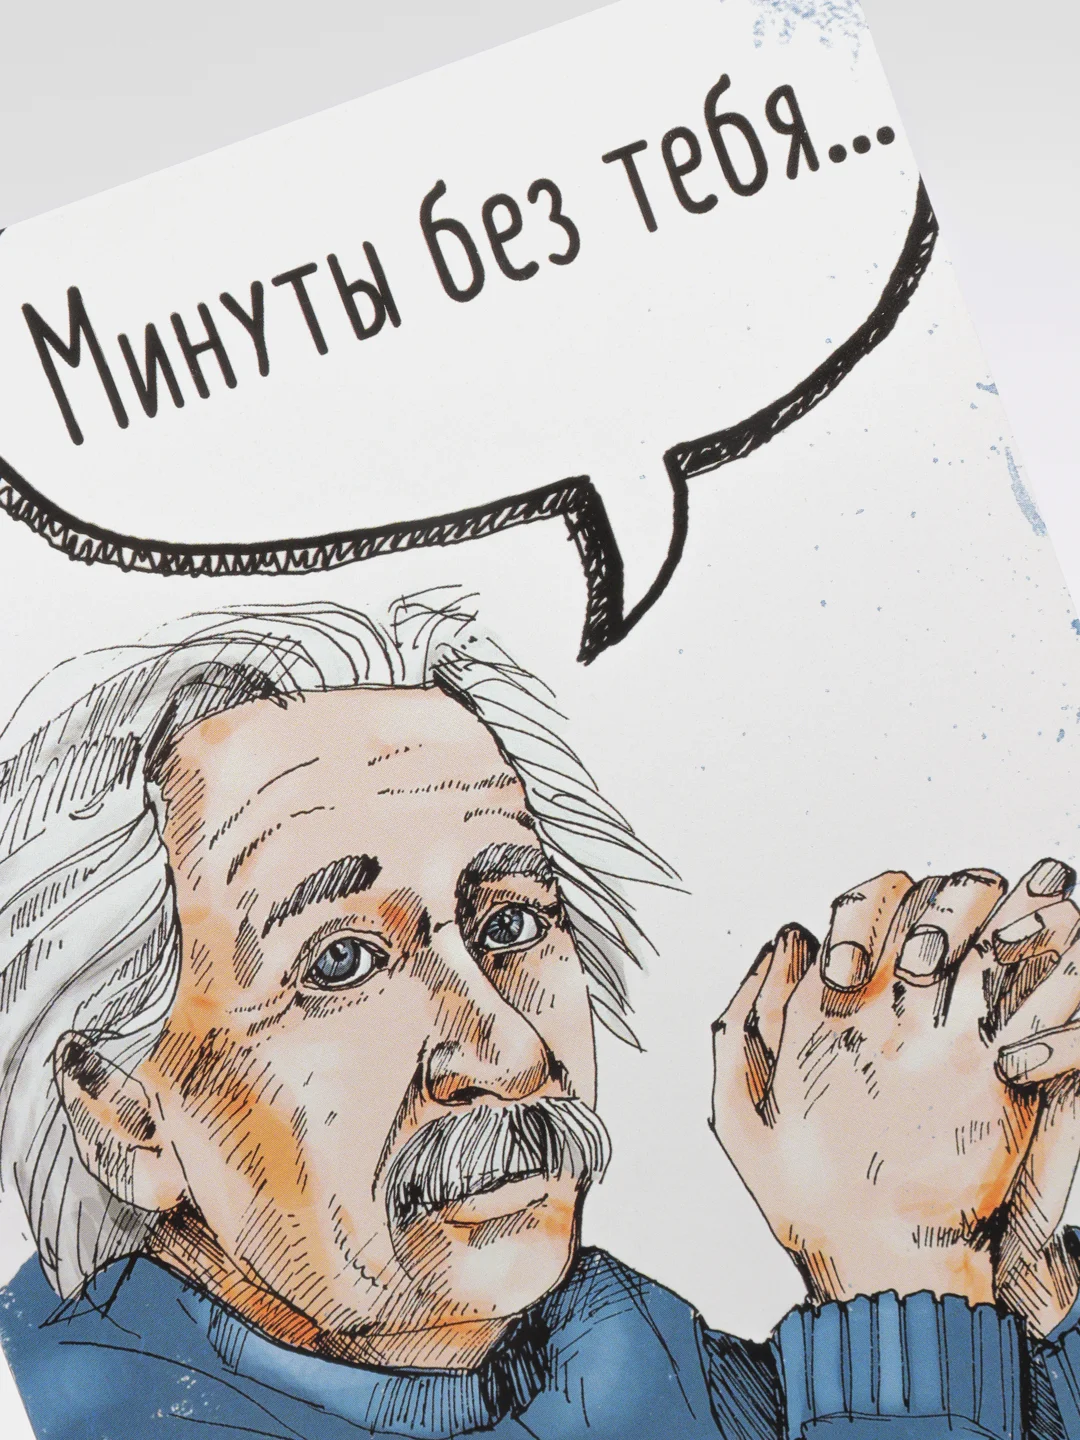 Минуты без тебя...